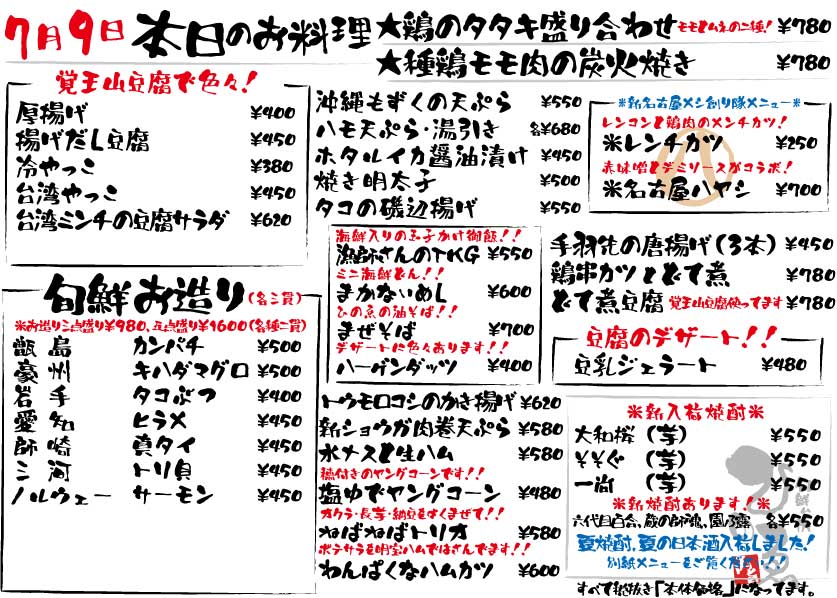 7月9日 本日のお料理
★鶏のタタキ盛り合わせ モモとムネの二種! ¥780
★種鶏モモ肉の炭火焼き ¥780
覚王山豆腐で色々!
厚揚げ ¥400
揚げだし豆腐 ¥450
冷やっこ ¥380
台湾やっこ ¥450
台湾ミンチの豆腐サラダ ¥620
旬鮮お造り(各三貫)
※お造り三点盛り¥980、五点盛り¥1600(各種二貫)
甑島 カンパチ ¥500
豪州 キハダマグロ ¥500
岩手 タコぶつ ¥400
愛知 ヒラメ ¥450
師崎 真タイ ¥450
三河 トリ貝 ¥450
ノルウェー サーモン ¥450
沖縄もずくの天ぷら ¥550
ハモ天ぷら・湯引き 各¥680
ホタルイカ醤油漬け ¥450
焼き明太子 ¥500
タコの磯辺揚げ ¥550
海鮮入りの玉子かけ御飯!!
漁師さんのTKG ¥550
ミニ海鮮どん!!
まかないめし ¥600
ひの衛の油そば!!
まぜそば ¥700
デザートに色々あります!!
ハーゲンダッツ ¥400
トウモロコシのかき揚げ ¥620
新ショウガ肉巻天ぷら ¥580
水ナスと生ハム ¥580
穂付きのヤングコーンです!!
塩ゆでヤングコーン ¥480
オクラ・長芋・納豆をよくまぜて!!
ねばねばトリオ ¥580
ポテサラを明宝ハムではさんでます!!
わんぱくなハムカツ ¥600
※新名古屋メシ創り隊メニュー※
レンコンと鶏肉のメンチカツ!
※レンチカツ ¥250
赤味噌とデミソースがコラボ!
※名古屋ハヤシ ¥700
手羽先の唐揚げ(3本) ¥450
鶏串カツとどて煮 ¥780
どて煮豆腐 覚王山豆腐使ってます ¥780
豆腐のデザート!!
豆乳ジェラート ¥480
※新入荷焼酎※
大和桜(芋) ¥550
そそぐ(芋) ¥550
一尚(芋) ¥550
※新焼酎あります!※
六代目百合、蔵の師魂、園乃露 各¥550
夏焼酎、夏の日本酒入荷しました!
別紙メニューをご覧ください!!
すべて税抜き「本体価格」になってます。